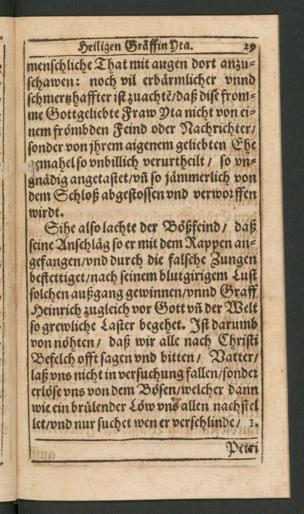 Heiligen Gräffin Yta. 29
menschliche That mit augen dort anzu-
schawen: noch vil erbärmlicher vnnd
schmertzhaffter ist zuachtē/daß dise from-
me Gottgeliebte Fraw Yta nicht von ei-
nem frömbden Feind oder Nachrichter/
sonder von jhrem aigenem geliebten Ehe
gemahel so vnbillich verurtheilt / so vn-
gnädig angetastet/vñ so jämmerlich von
dem Schloß abgestossen vnd verworffen
wirdt.
Sihe also lachte der Bößfeind / daß
seine Anschläg so er mit dem Rappen an-
gefangen/vnd durch die falsche Zungen
bestettiget/nach seinem blutgirigem Lust
solchen außgang gewinnen/vnnd Graff
Heinrich zugleich vor Gott vñ der Welt
so grewliche Laster begehet. Ist darumb
von nöhten / daß wir alle nach Christi
Befelch offt sagen vnd bitten / Vatter/
laß vns nicht in versuchung fallen/sonder
erlöse vns von dem Bösen/welcher dann
wie ein brülender Löw vns allen nachstel
let/vnd nur suchet wen er verschlinde / 1.
Petri